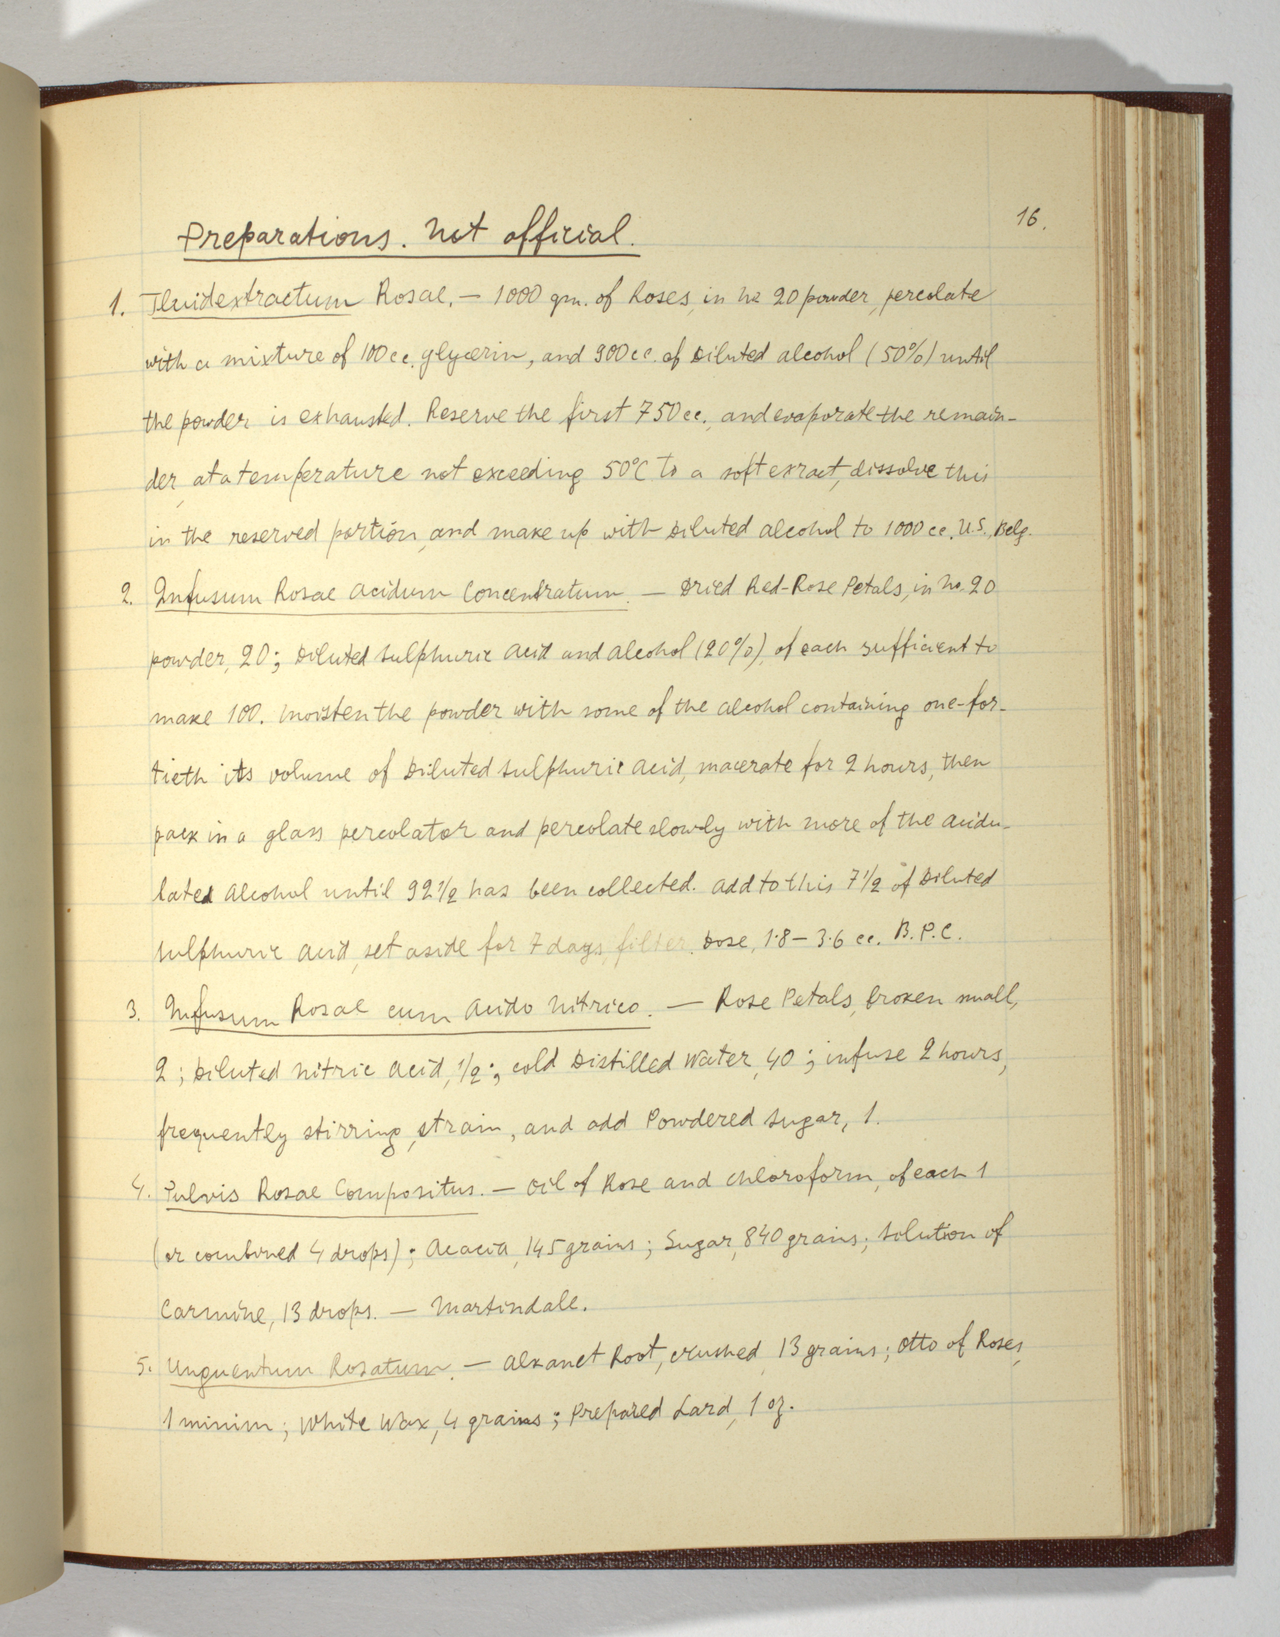 16.
Preparations. Not official.
1. Fluidextractum Rosae. — 1000 gm. of Roses, in No 20 powder, percolate
with a mixture of 100 cc. glycerin, and 900 cc. of Diluted alcohol (50%) until
the powder is exhausted. Reserve the first 750 cc., and evaporate the remain-
der, at a temperature not exceeding 50°C to a soft exract, dissolve this
in the reserved portion, and make up with Diluted alcohol to 1000 cc. U.S., Belg.
2. Infusum Rosae Acidum Concentratum. — Dried Red-Rose Petals, in No. 20
powder, 20; Diluted Sulphuric Acid and Alcohol (20%), of each sufficient to
make 100. Moisten the powder with some of the alcohol containing one-for-
tieth its volume of Diluted Sulphuric Acid, macerate for 2 hours, then
pack in a glass percolator and percolate slowly with more of the acidu-
lated Alcohol until 92 1/2 has been collected. Add to this 7 1/2 of Diluted
Sulphuric Acid, set aside for 7 days, filter. Dose, 1·8 – 3·6 cc. B.P.C.
3. Infusum Rosae cum Acido Nitrico. — Rose Petals, broken small,
2; Diluted Nitric Acid, 1/2; cold Distilled Water, 40; infuse 2 hours,
frequently stirring, strain, and add Powdered Sugar, 1.
4. Pulvis Rosae Compositus. — Oil of Rose and Chloroform, of each 1
(or combined 4 drops); Acacia, 145 grains; Sugar, 840 grains; Solution of
Carmine, 13 drops. — Martindale.
5. Unguentum Rosatum. — Alkanet Root, crushed, 13 grains; Otto of Roses,
1 minim; White Wax, 4 grains; Prepared Lard, 1 oz.